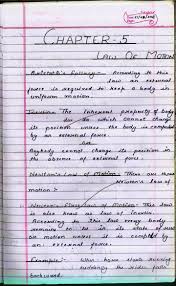 CHAPTER-5
LAW OF MOTION
Aristotle's Fallacy:- According to this
law an external
force is required to keep a body in
uniform motion.
Inertia:- The Inherent property of body
due to which cannot change
its position unless the body is compelled
by an external force.
Or
Anybody cannot change its position in
the absence of external force.
Newton's Law of Motion:- There are three
Newton's law of
motion:-
Newton's First law of Motion:- This law
is also known as law of Inertia.
According to this law every body
remains to be in its state of rest
or motion unless it is compelled by
an external force.
Example:- When horse starts running
suddenly the rider falls
backward.